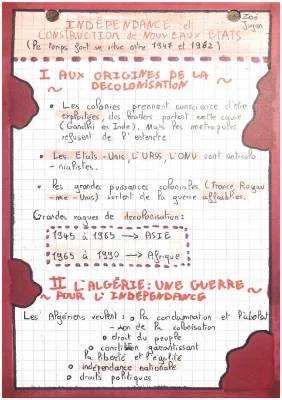 INDÉPENDANCE et
CONSTRUCTION de NOUVEAUX ÉTATS
Zoé
(le temps fort se situe entre 1947 et 1962)
I AUX ORIGINES DE LA
DÉCOLONISATION
• Les colonies prennent conscience d'être
exploitées, des leaders portent cette cause
(Gandhi en Inde). Mais les métropoles
refusent de l'entendre
• Les États-Unis, L'URSS, L'ONU sont anticolo
-nialistes.
• Les grandes puissances coloniales (France, Royau
-me-Unis) sortent de la guerre affaiblies.
Grandes vagues de décolonisation:
1945 à 1965 → ASIE
1965 à 1990 → Afrique
II L'ALGÉRIE: UNE GUERRE
POUR L'INDÉPENDANCE
Les Algériens veulent: o la condamnation et l'aboli
-tion de la colonisation
o droit du peuple
o constitution garantissant
la liberté et l'égalité
o indépendance nationale
o droits politiques